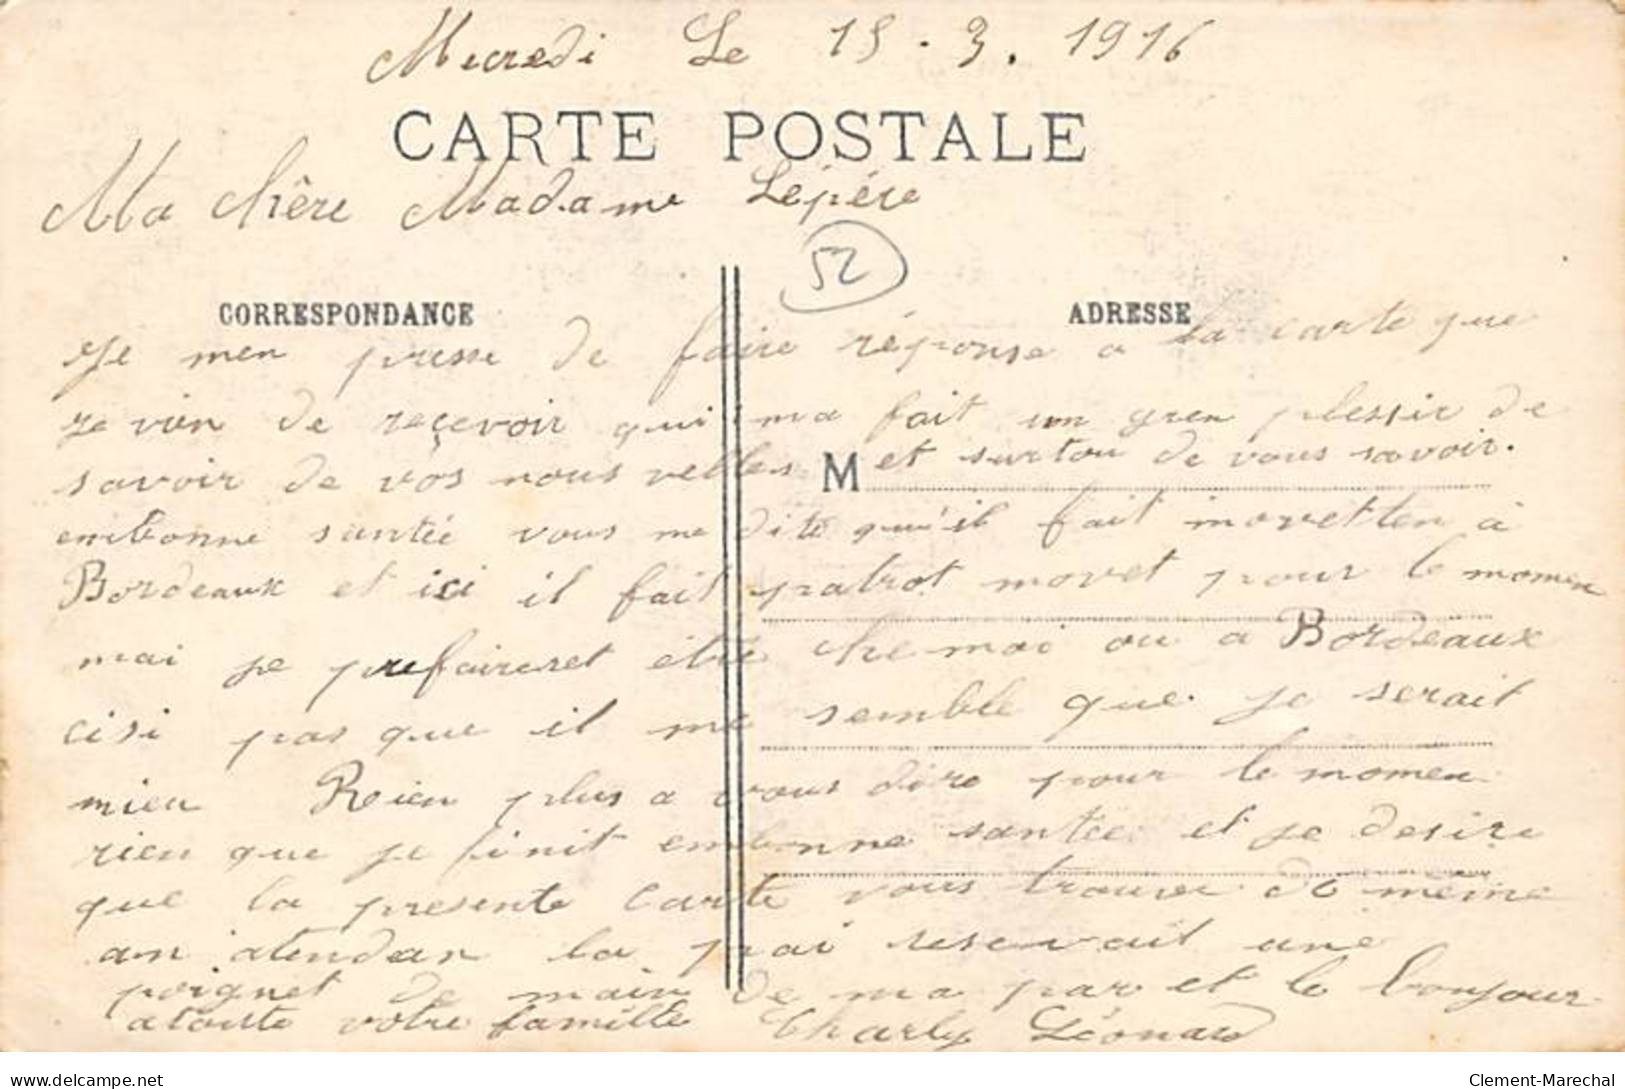 Mecredi Le 15.3.1916
CARTE POSTALE
Ma chêre Madame Lépére
52
CORRESPONDANCE ADRESSE
Je men presse de faire réponse a la carte que
je vien de reçevoir qui ma fait un gren plessir de
savoir de vos nous velles M et surtou de vous savoir.
enbonne santée vous me dite qu'il fait movetten à
Bordeaux et ici il fait patrot movet pour le momen
mai je prefaireret être che moi ou a Bordeaux
cisi pas que il me semble que je serait
mieu Rien plus a vous dire pour le momen
rien que je finit enbonne santée et je desire
que la presente carte vous trouver de même
an atendan la pai resevait une
poignet de main de ma par et le bonjour
a toute votre famille Charly Léonard
Clement-Marechal
delcampe.net